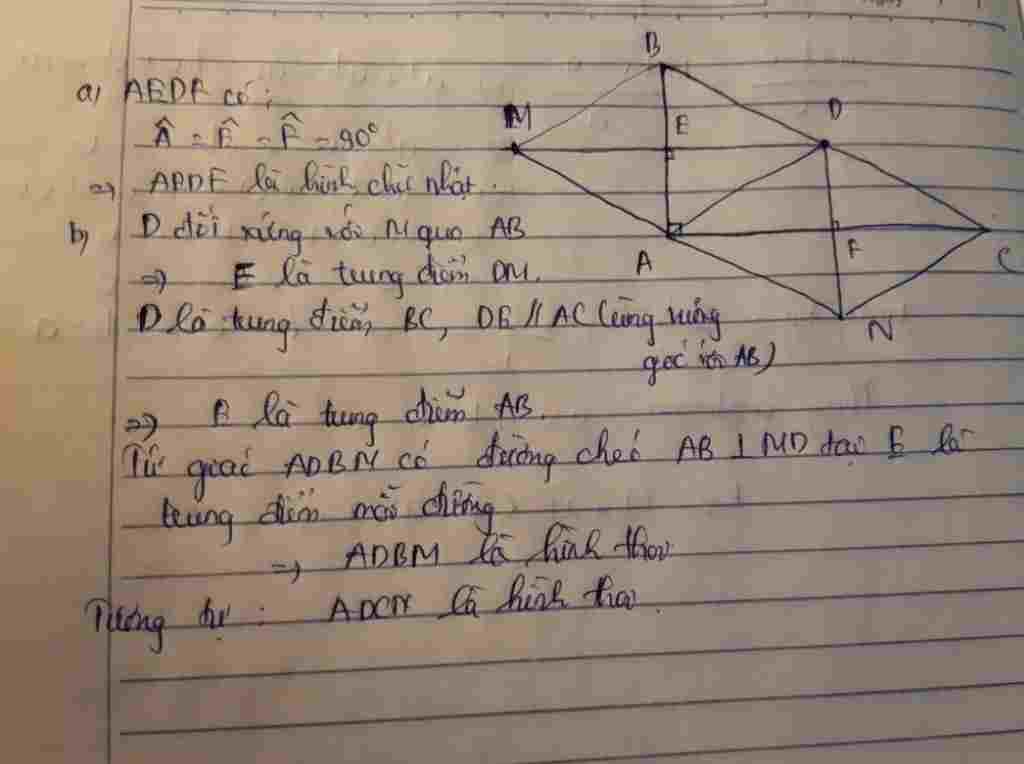 a) AEDF có:
Â = Ê = F̂ = 90°
=> AEDF là hình chữ nhật.
b) D đối xứng với M qua AB
=> E là trung điểm DM.
D là trung điểm BC, DE // AC (cùng vuông
góc với AB)
=> E là trung điểm AB.
Tứ giác ADBM có đường chéo AB ⊥ MD tại E là
trung điểm mỗi đường
=> ADBM là hình thoi
Tương tự: ADCN là hình thoi.
B
M
E
D
A
F
C
N